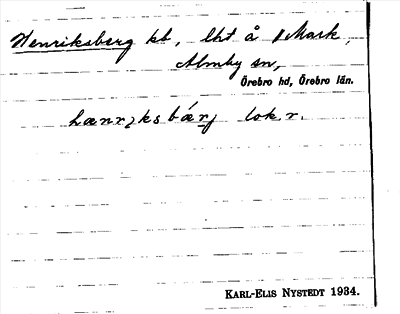 Henriksberg kb, lht å Mark,
Almby sn,
Örebro hd, Örebro län.
hænrɩksbárj lok. r.
KARL-ELIS NYSTEDT 1934.